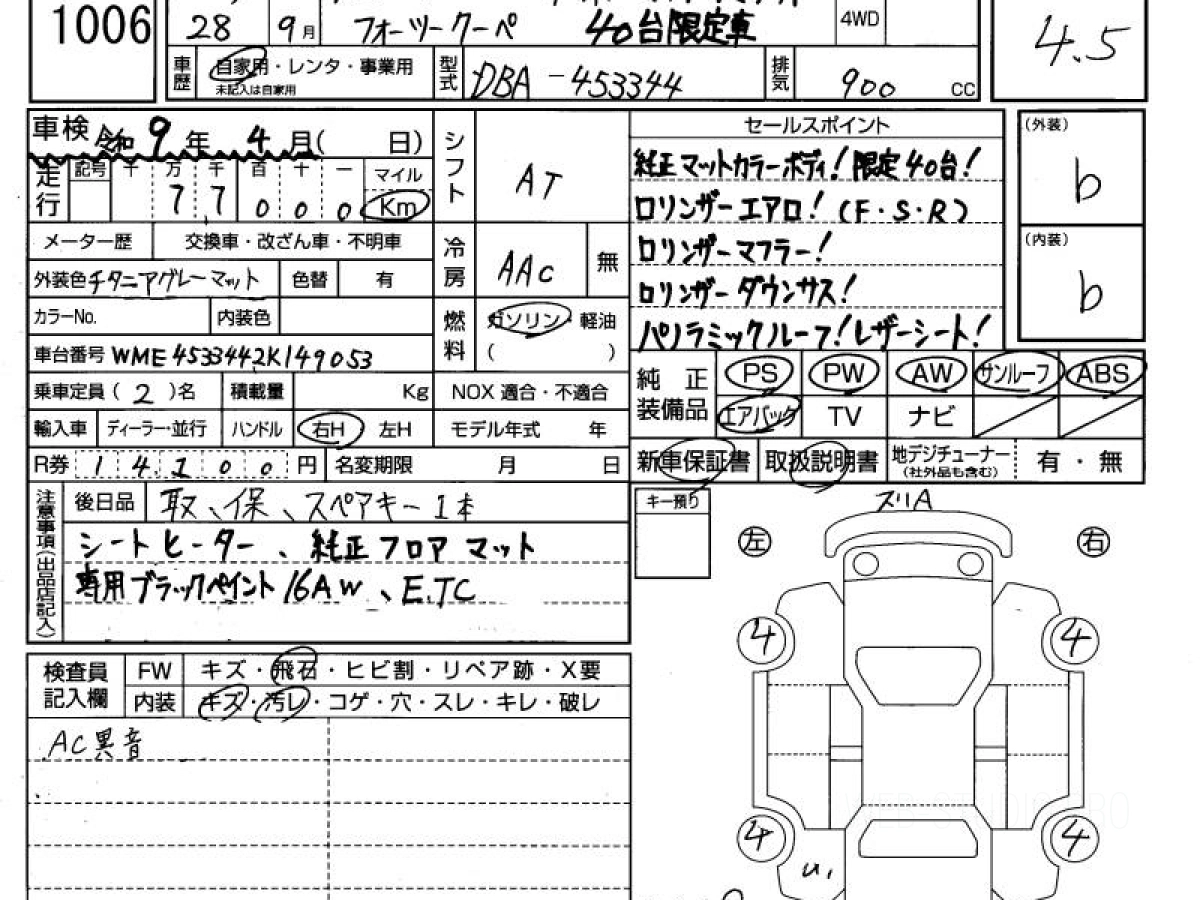 1006
28 9月
フォーツークーペ 40台限定車
4WD
4.5
車歴 自家用・レンタ・事業用
未記入は自家用
型式 DBA-453344
排気 900 CC
車検 令和9年4月( 日)
走行 記号 十 万 千 百 十 一 マイル
7 7 0 0 0 Km
メーター歴 交換車・改ざん車・不明車
外装色 チタニアグレーマット 色替 有
カラーNo. 内装色
車台番号 WME4533442K149053
乗車定員(2)名 積載量 Kg
輸入車 ディーラー・並行 ハンドル 右H 左H
R券 14100円 名変期限 月 日
シフト AT
冷房 AAC 無
燃料 ガソリン・軽油
( )
NOX 適合・不適合
モデル年式 年
セールスポイント
純正マットカラーボディ!限定40台!
ロリンザーエアロ!(F・S・R)
ロリンザーマフラー!
ロリンザーダウンサス!
パノラミックルーフ!レザーシート!
(外装)
b
(内装)
b
純正装備品 PS PW AW サンルーフ ABS
エアバック TV ナビ
新車保証書 取扱説明書 地デジチューナー
(社外品も含む) 有・無
注意事項(出品店記入)
後日品 取、保、スペアキー1本
シートヒーター、純正フロアマット
専用ブラックペイント16AW、E.TC
キー預り
ズリA
左 右
4 4
4 4
検査員記入欄 FW キズ・飛石・ヒビ割・リペア跡・X要
内装 キズ・汚レ・コゲ・穴・スレ・キレ・破レ
AC異音